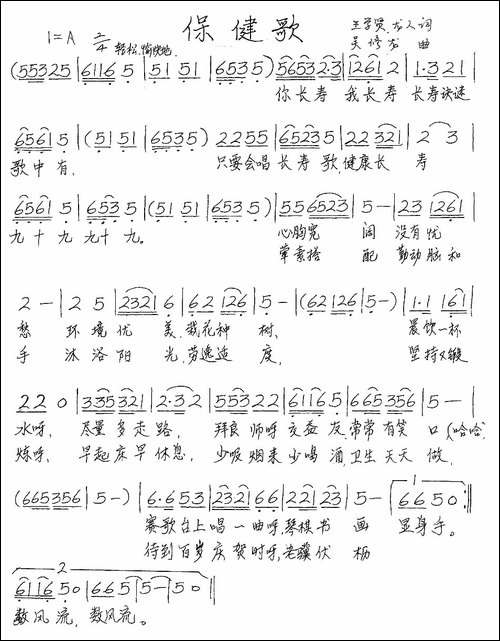 保健歌
1=A 2/4 轻松、愉快地 王学贤、龙人词
吴修龙 曲
(55325|6116 5|51 51|6535)|5653 2·3|1261 2|1·321|
你长寿 我长寿 长寿诀迷
6561 5|(51 51|6535)|2255|65235|22 321|2 3|
歌中有, 只要会唱长寿歌,健康长 寿
6561 5|653 5|(51 51|6535)|55 6523|5-|23 1261|
九十九 九十九。 心胸宽 阔 没有忧
荤素搭 配 勤动脑和
2-|25|2321 6|62 126|5-|(62 126|5-)|1·1 161|
愁 环境优 美,栽花种 树、 晨饮一杯
手 沐浴阳 光,劳逸适 度, 坚持又锻
22 0|335321|2·32|55322|61165|665356|5-|
水呀, 尽量多走路, 拜良师呀交益友,常常有笑 口(哈哈)
炼呀, 早起床早休息, 少吸烟来少喝酒,卫生天天 做,
(665356|5-)|6·653|2321 66|221 23|5-|6650:‖
赛歌台上唱一曲呀,琴棋书 画 显身手。
待到百岁庆贺时呀,老骥伏 枥
6116 50|665|5-|50‖
数风流, 数风流。